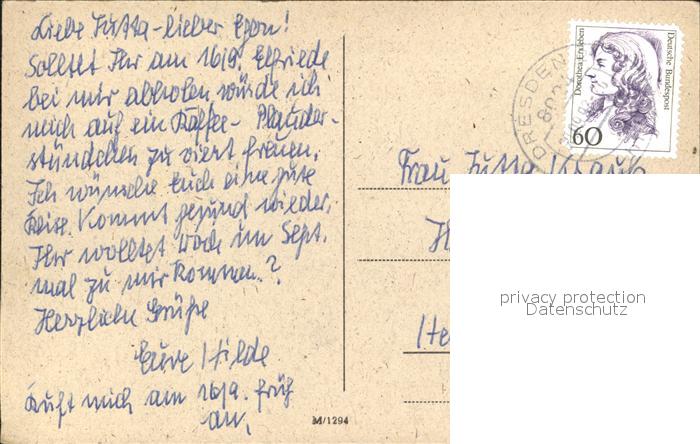 Liebe Jutta - lieber Egon!
Solltet Ihr am 16/9. Elfriede
bei mir abholen würde ich
mich auf ein Kaffee- Plauder-
stündchen zu viert freuen.
Ich wünsche Euch eine gute
Reise. Kommt gesund wieder.
Ihr wolltet doch im Sept.
mal zu mir kommen.?
Herzliche Grüße
Eure Hilde
Ruft mich am 16/9. früh
an.
M/1294
DRESDEN
Dorothea Erxleben
Deutsche Bundespost
60
Frau Jutta
privacy protection
Datenschutz